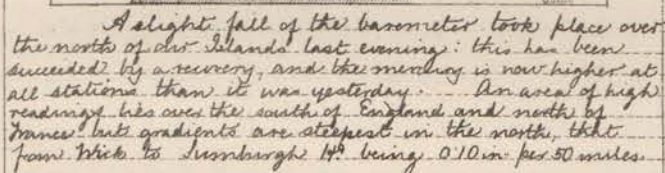 A slight fall of the barometer took place over
the north of our Islands last evening: this has been
succeeded by a recovery, and the mercury is now higher at
all stations than it was yesterday. An area of high
readings lies over the south of England and north of
France but gradients are steepest in the north, that
from Wick to Sumburgh Hd. being 0.10 in. per 50 miles.